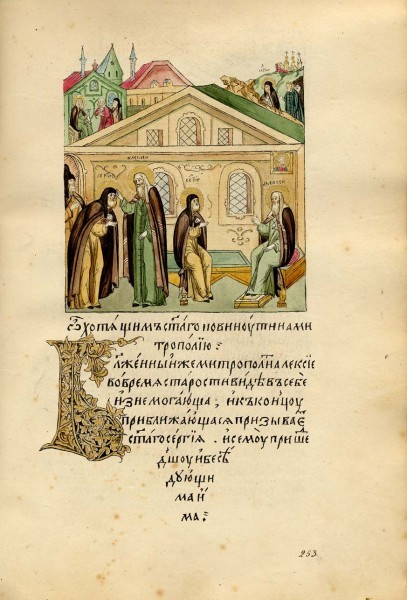 Ѡ хотѧщимъ ст҃аго повиноути на ми
трополїю:
Блж҃енныи же митрополит алеѯїе
во время старости видѣвъ себе
изнемогающа; и къ концоу
приближающася призывает
ст҃аго сергїя . и семоу прише
дшоу и бесѣ
дующи
ма и
ма:
253